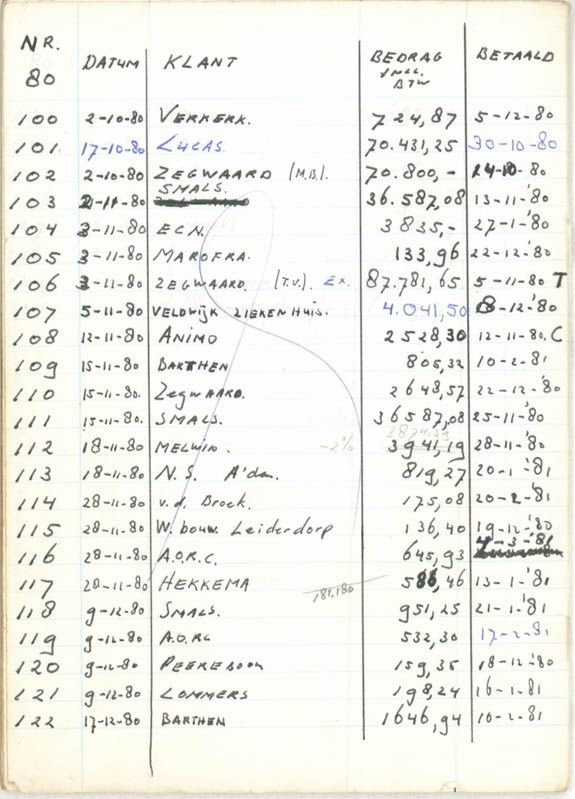 NR. DATUM KLANT BEDRAG BETAALD
80 INCL. BTW
100 2-10-80 VERKERK. 724,87 5-12-80
101. 17-10-80 LUCAS. 70.431,25 30-10-80
102 2-10-80 ZEGWAARD (M.B.) 70.800,- 14-10-80
103 2-11-80 SMALS. 36.587,08 13-11-'80
104 3-11-80 ECN. 3835,- 27-1-'80
105 3-11-80 MAROFRA. 133,96 22-12-'80
106 3-11-80 ZEGWAARD. (T.V.) EX. 87.781,65 5-11-80 T
107 5-11-80 VELDWIJK ZIEKENHUIS. 4.041,50 8-12-'80
108 12-11-80 ANIMO 2528,30 12-11-80. C
109 15-11-80 BARTHEN 805,32 10-2-'81
110 15-11-80. Zegwaard. 2648,57 22-12-'80
111 15-11-80. SMALS. 36587,08 25-11-'80
112 18-11-80 MELWIN. -2% 3941,19 28-11-'80
113 18-11-80 N.S. A'dam. 819,27 20-1-'81
114 28-11-80 v.d. Broek. 175,08 20-2-'81
115 28-11-80 W.bouw. Leiderdorp 136,40 19-12-'80
116 28-11-80 A.O.R.C. 645,93 4-3-'81
117 28-11-80 HEKKEMA 586,46 13-1-'81
181.180
118 9-12-80 SMALS. 951,25 21-1-'81
119 9-12-80 A.O.RC 532,30 17-2-81
120 9-12-80 PEEREBOOM 159,35 18-12-'80
121 9-12-80 LOMMERS 198,24 16-1-'81
122 17-12-80 BARTHEN 1646,94 10-2-'81